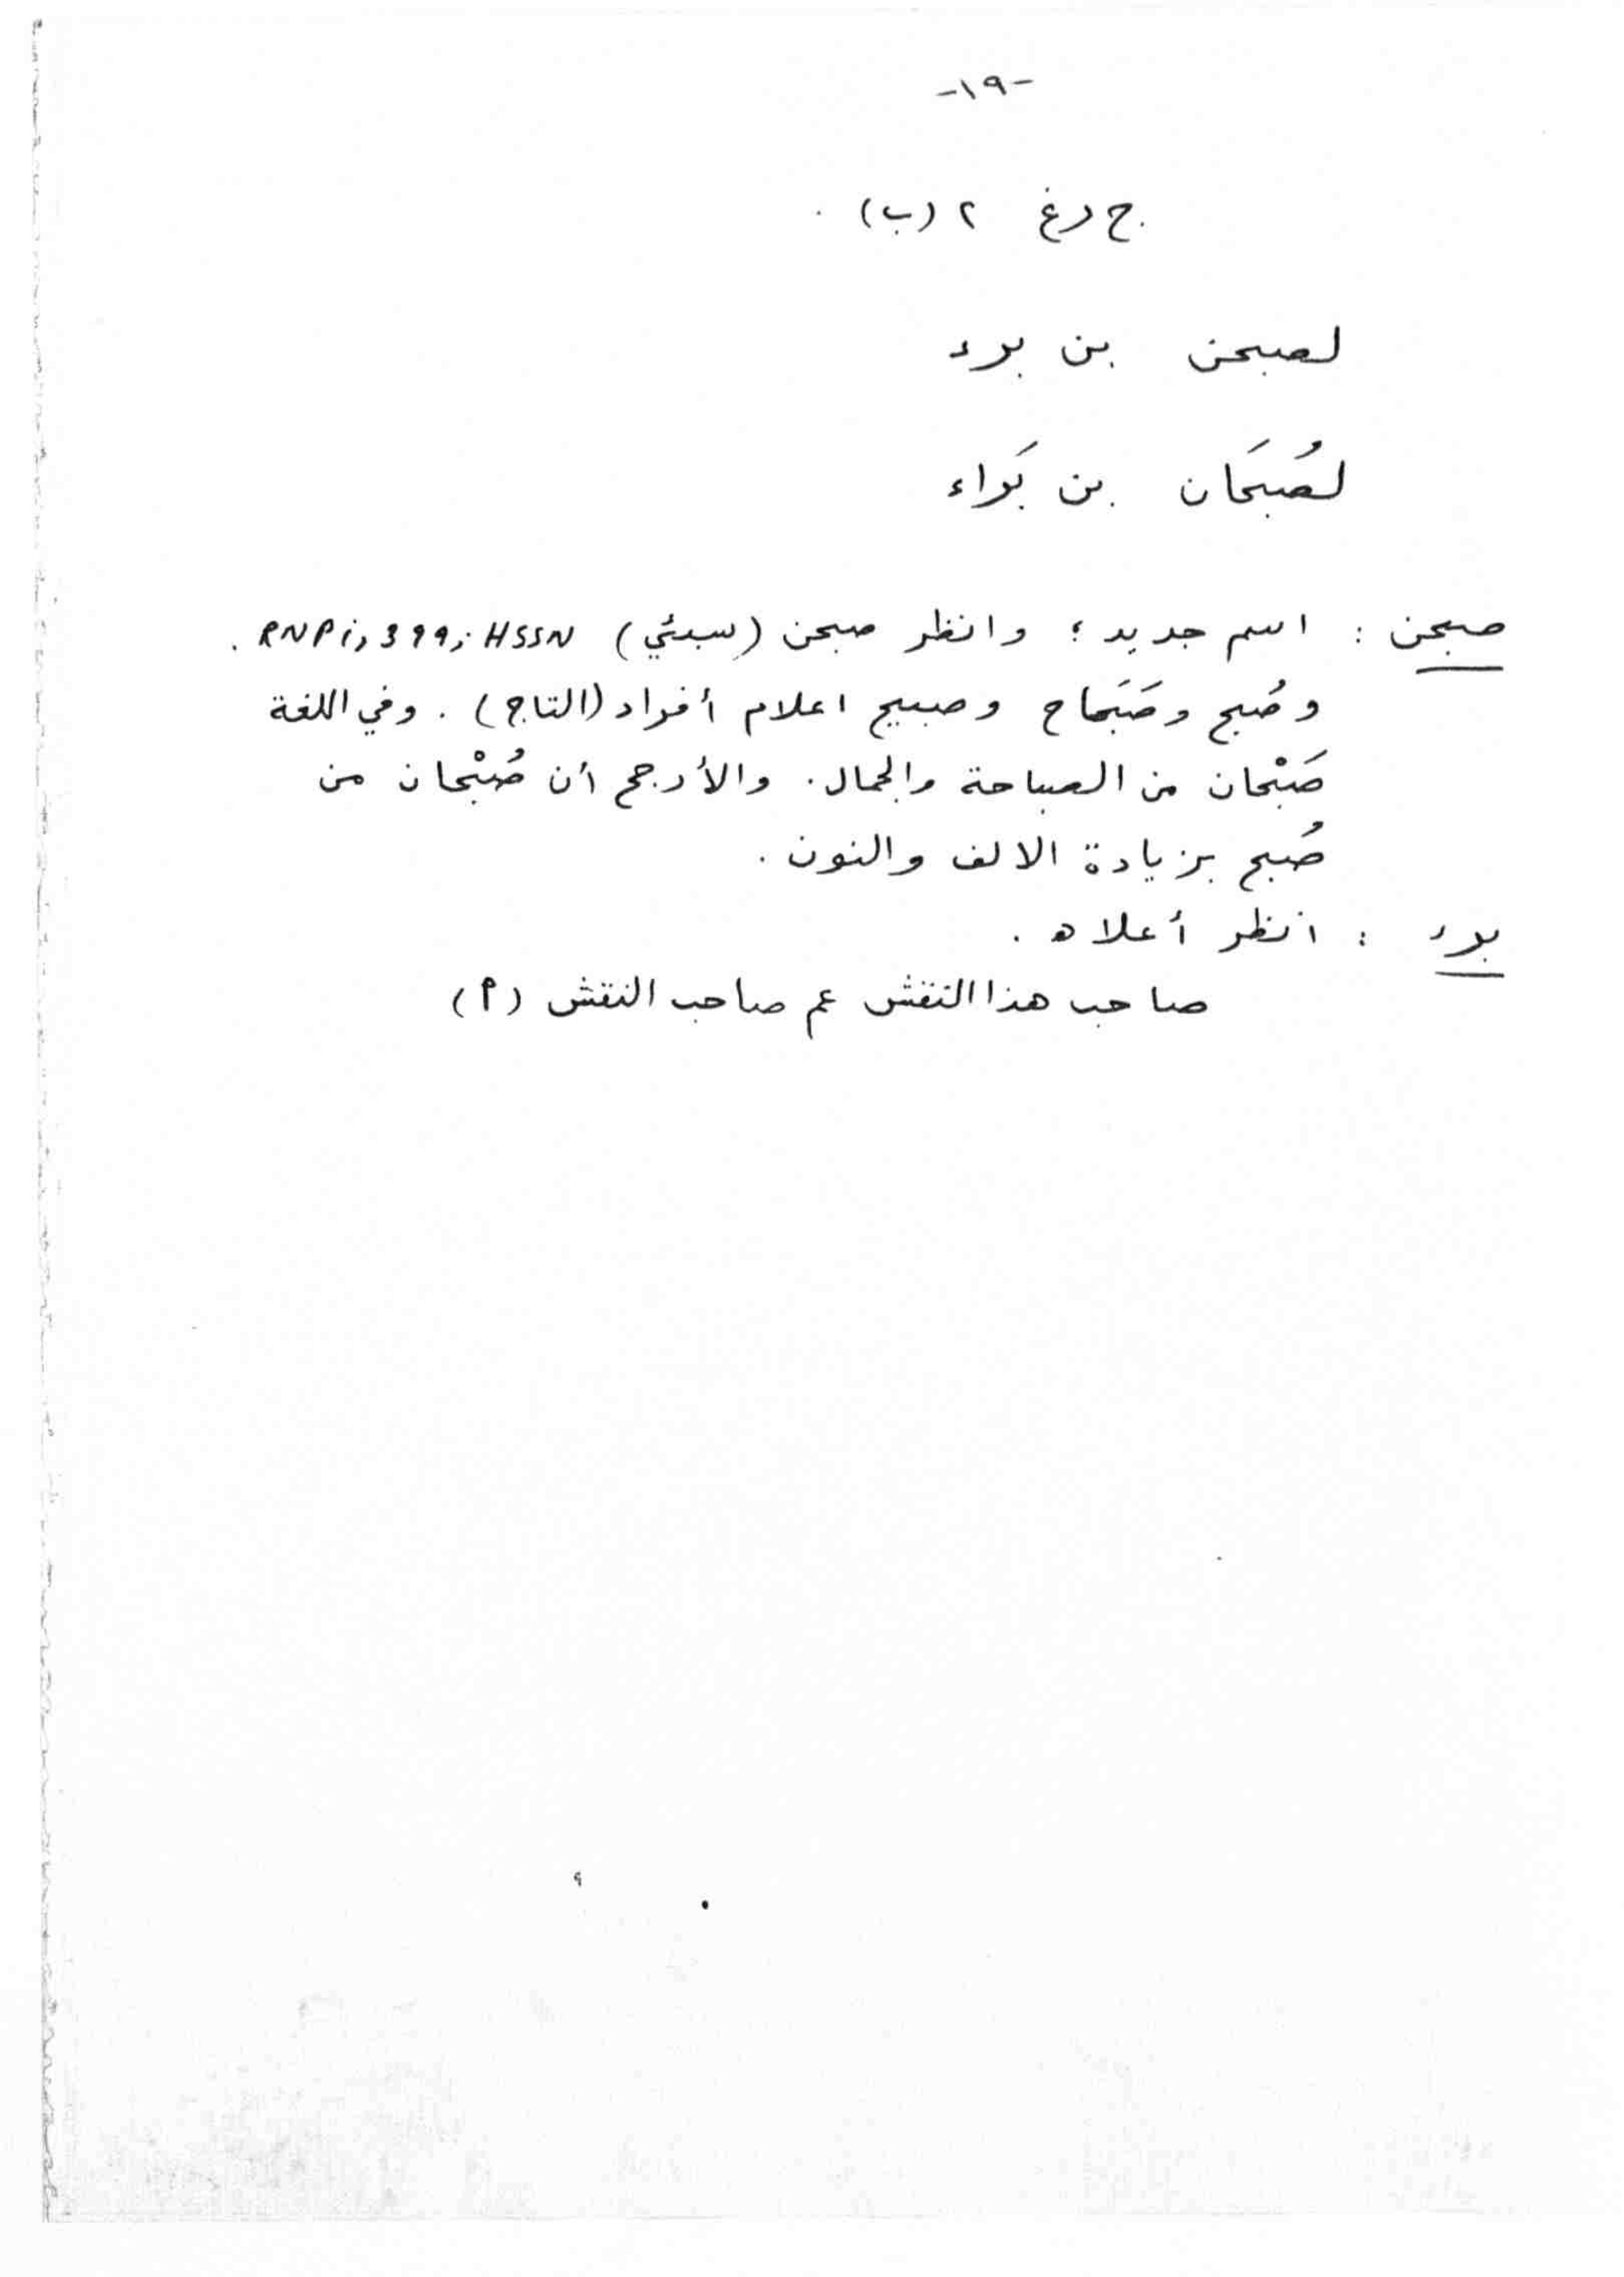 -١٩-
ح رغ ٢ (ب) .
لصبحن بن برء
لصُبحَان بن بَراء
صبحن : اسم جديد ؛ وانظر صبحن (سبئي) RNP i, 399; HSSN .
وصُبح وصَبَاح وصبيح اعلام أفراد (التاج) . وفي اللغة
صَبْحان من الصباحة والجمال . والأرجح أن صُبْحان من
صُبح بزيادة الالف والنون .
برء : انظر أعلاه .
صاحب هذا النقش عم صاحب النقش (أ)